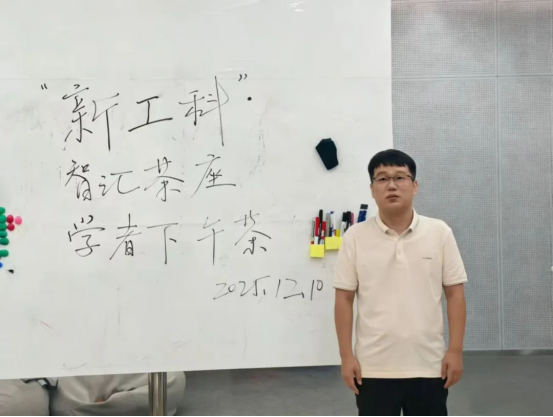 “新工科”·
智汇茶座
学者下午茶
2025.12.10